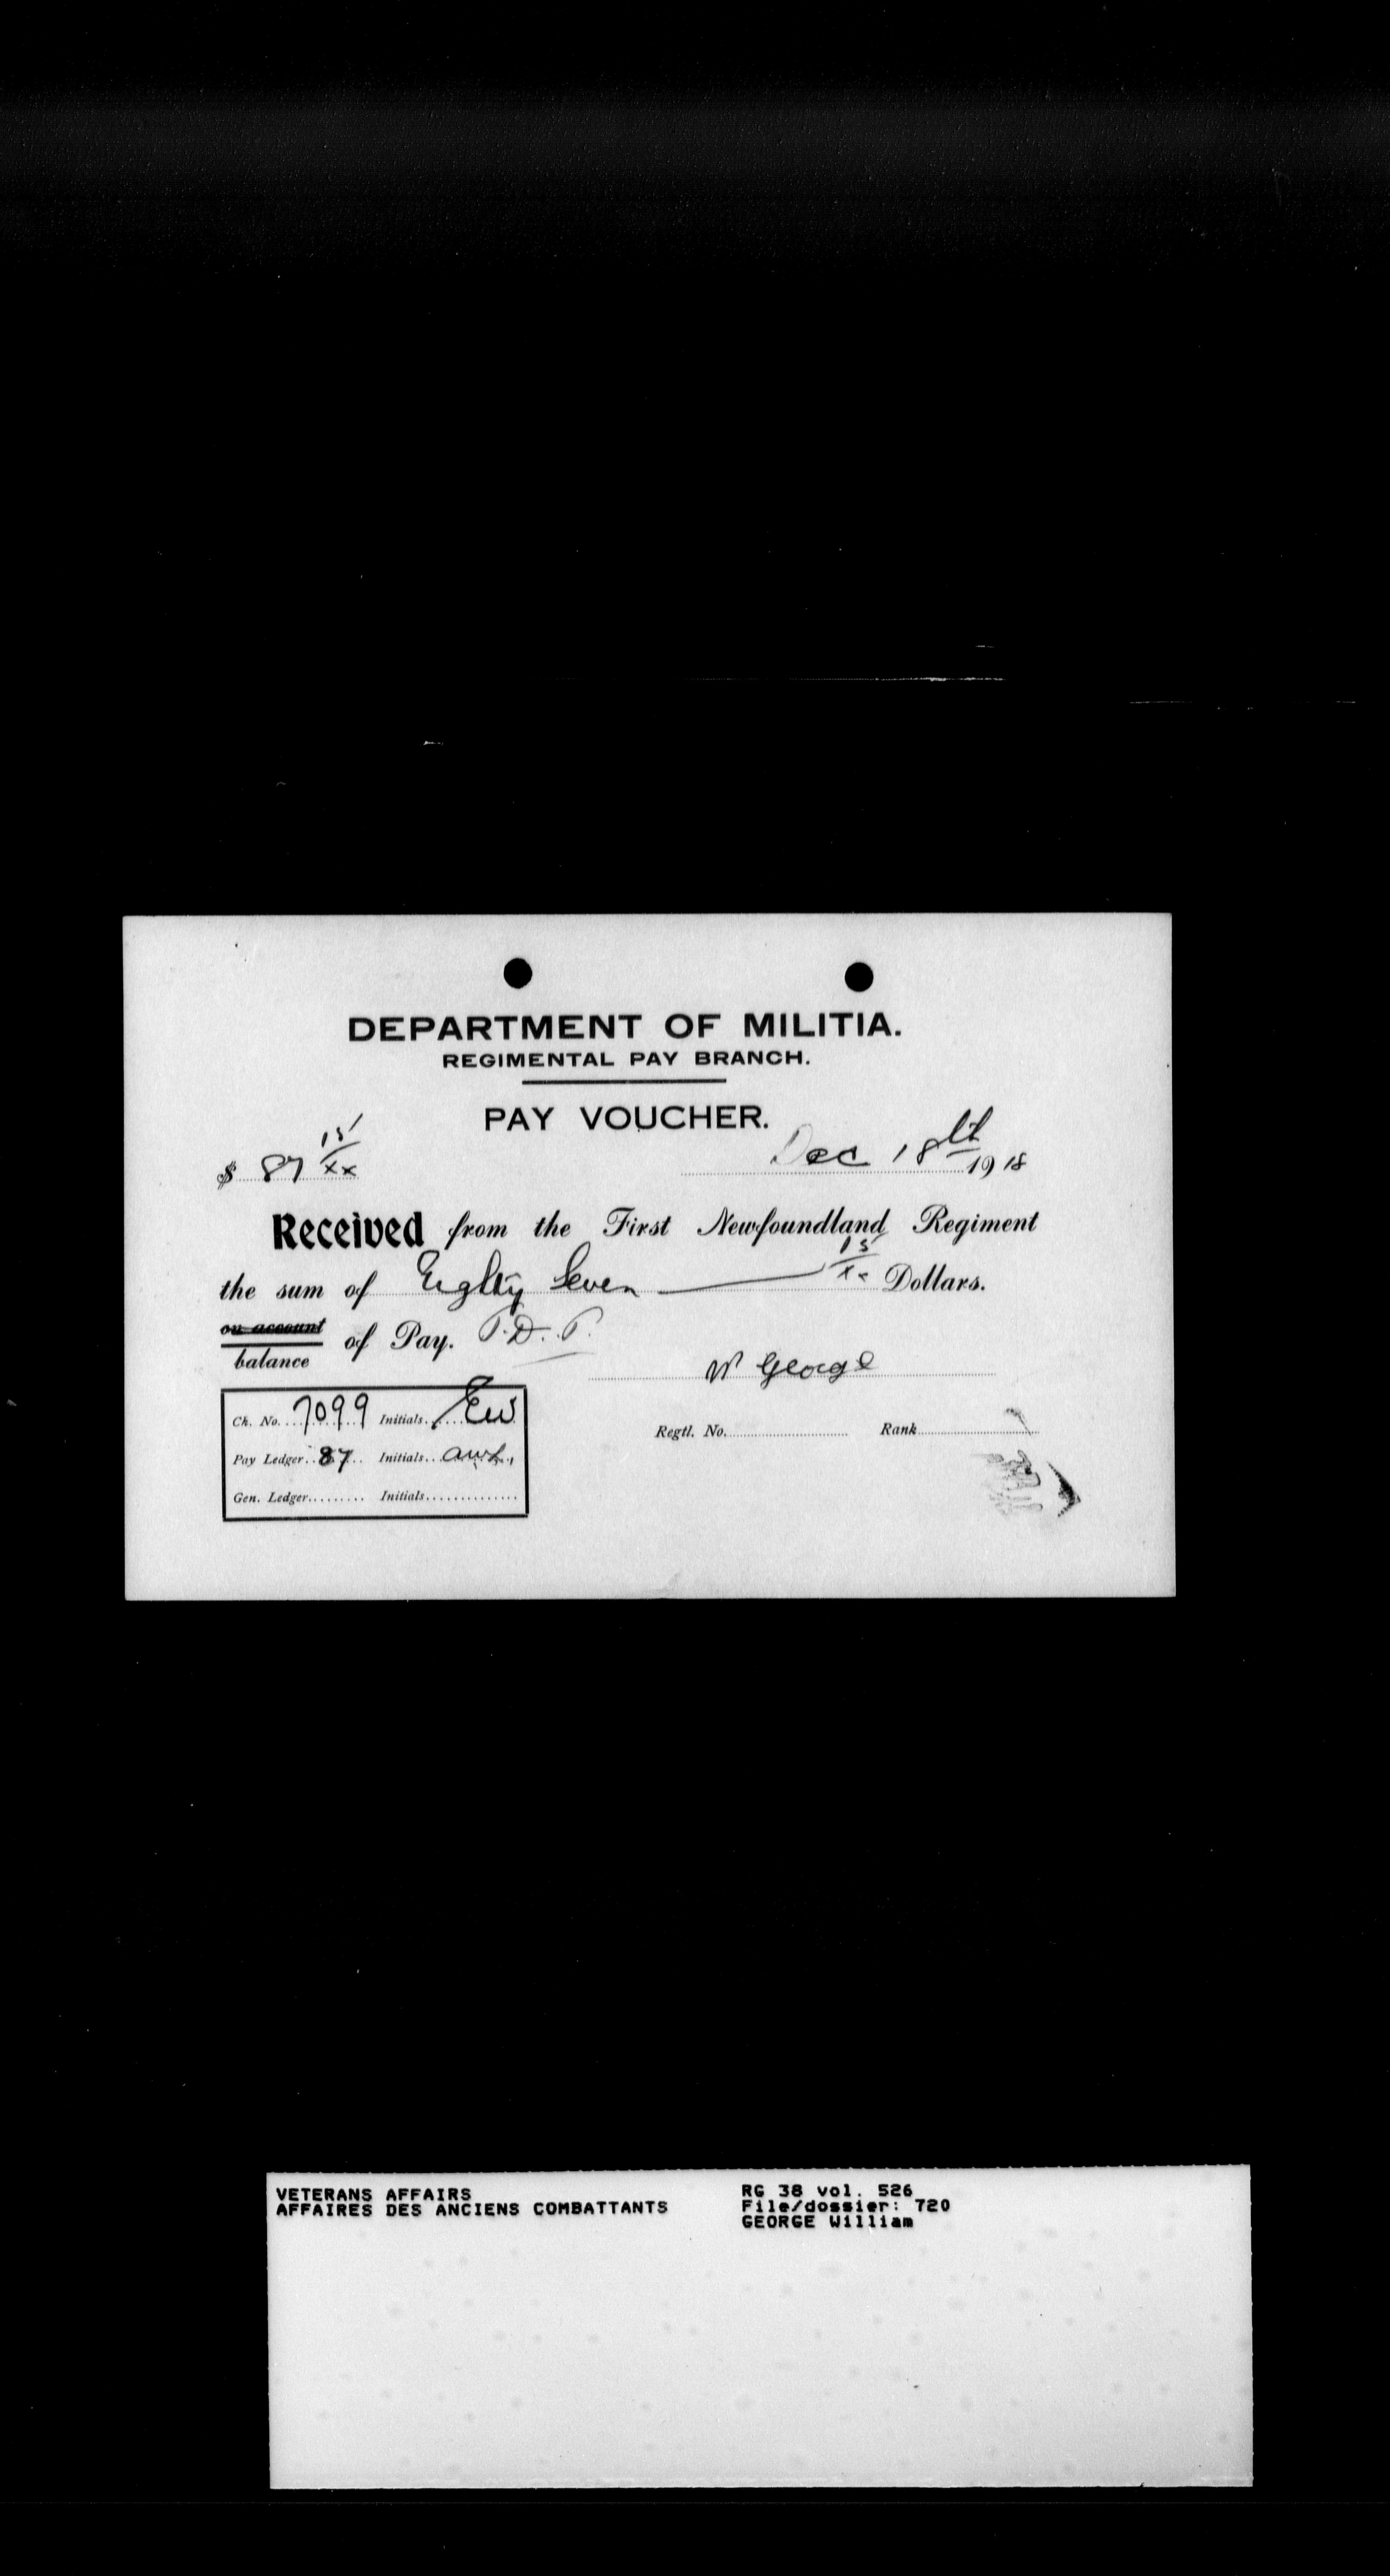 DEPARTMENT OF MILITIA.
REGIMENTAL PAY BRANCH.
PAY VOUCHER.
$ 87 15/xx Dec 18th 1918
Received from the First Newfoundland Regiment
the sum of Eighty Seven 15/xx Dollars.
on account
balance of Pay. P.D.P.
W George
Ch. No. 7099 Initials EW
Regtl. No. Rank
Pay Ledger 87 Initials
Gen. Ledger Initials
VETERANS AFFAIRS
AFFAIRES DES ANCIENS COMBATTANTS
RG 38 vol. 526
File/dossier: 720
GEORGE William